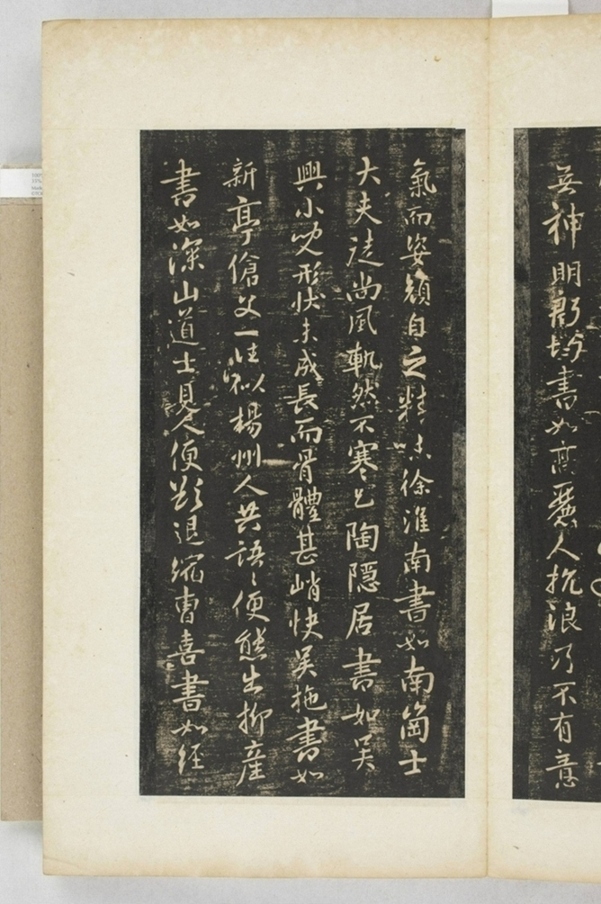 無神明郄愔書如高麗人抗浪乃不有意
氣而姿顏自足精味徐淮南書如南崗士
大夫徒尚風軌然不寒乞陶隱居書如吳
興小兒形狀未成長而骨體甚峭快吳施書如
新亭傖父一往似楊州人共語〻便態出柳產
書如深山道士見人便欲退縮曹喜書如經